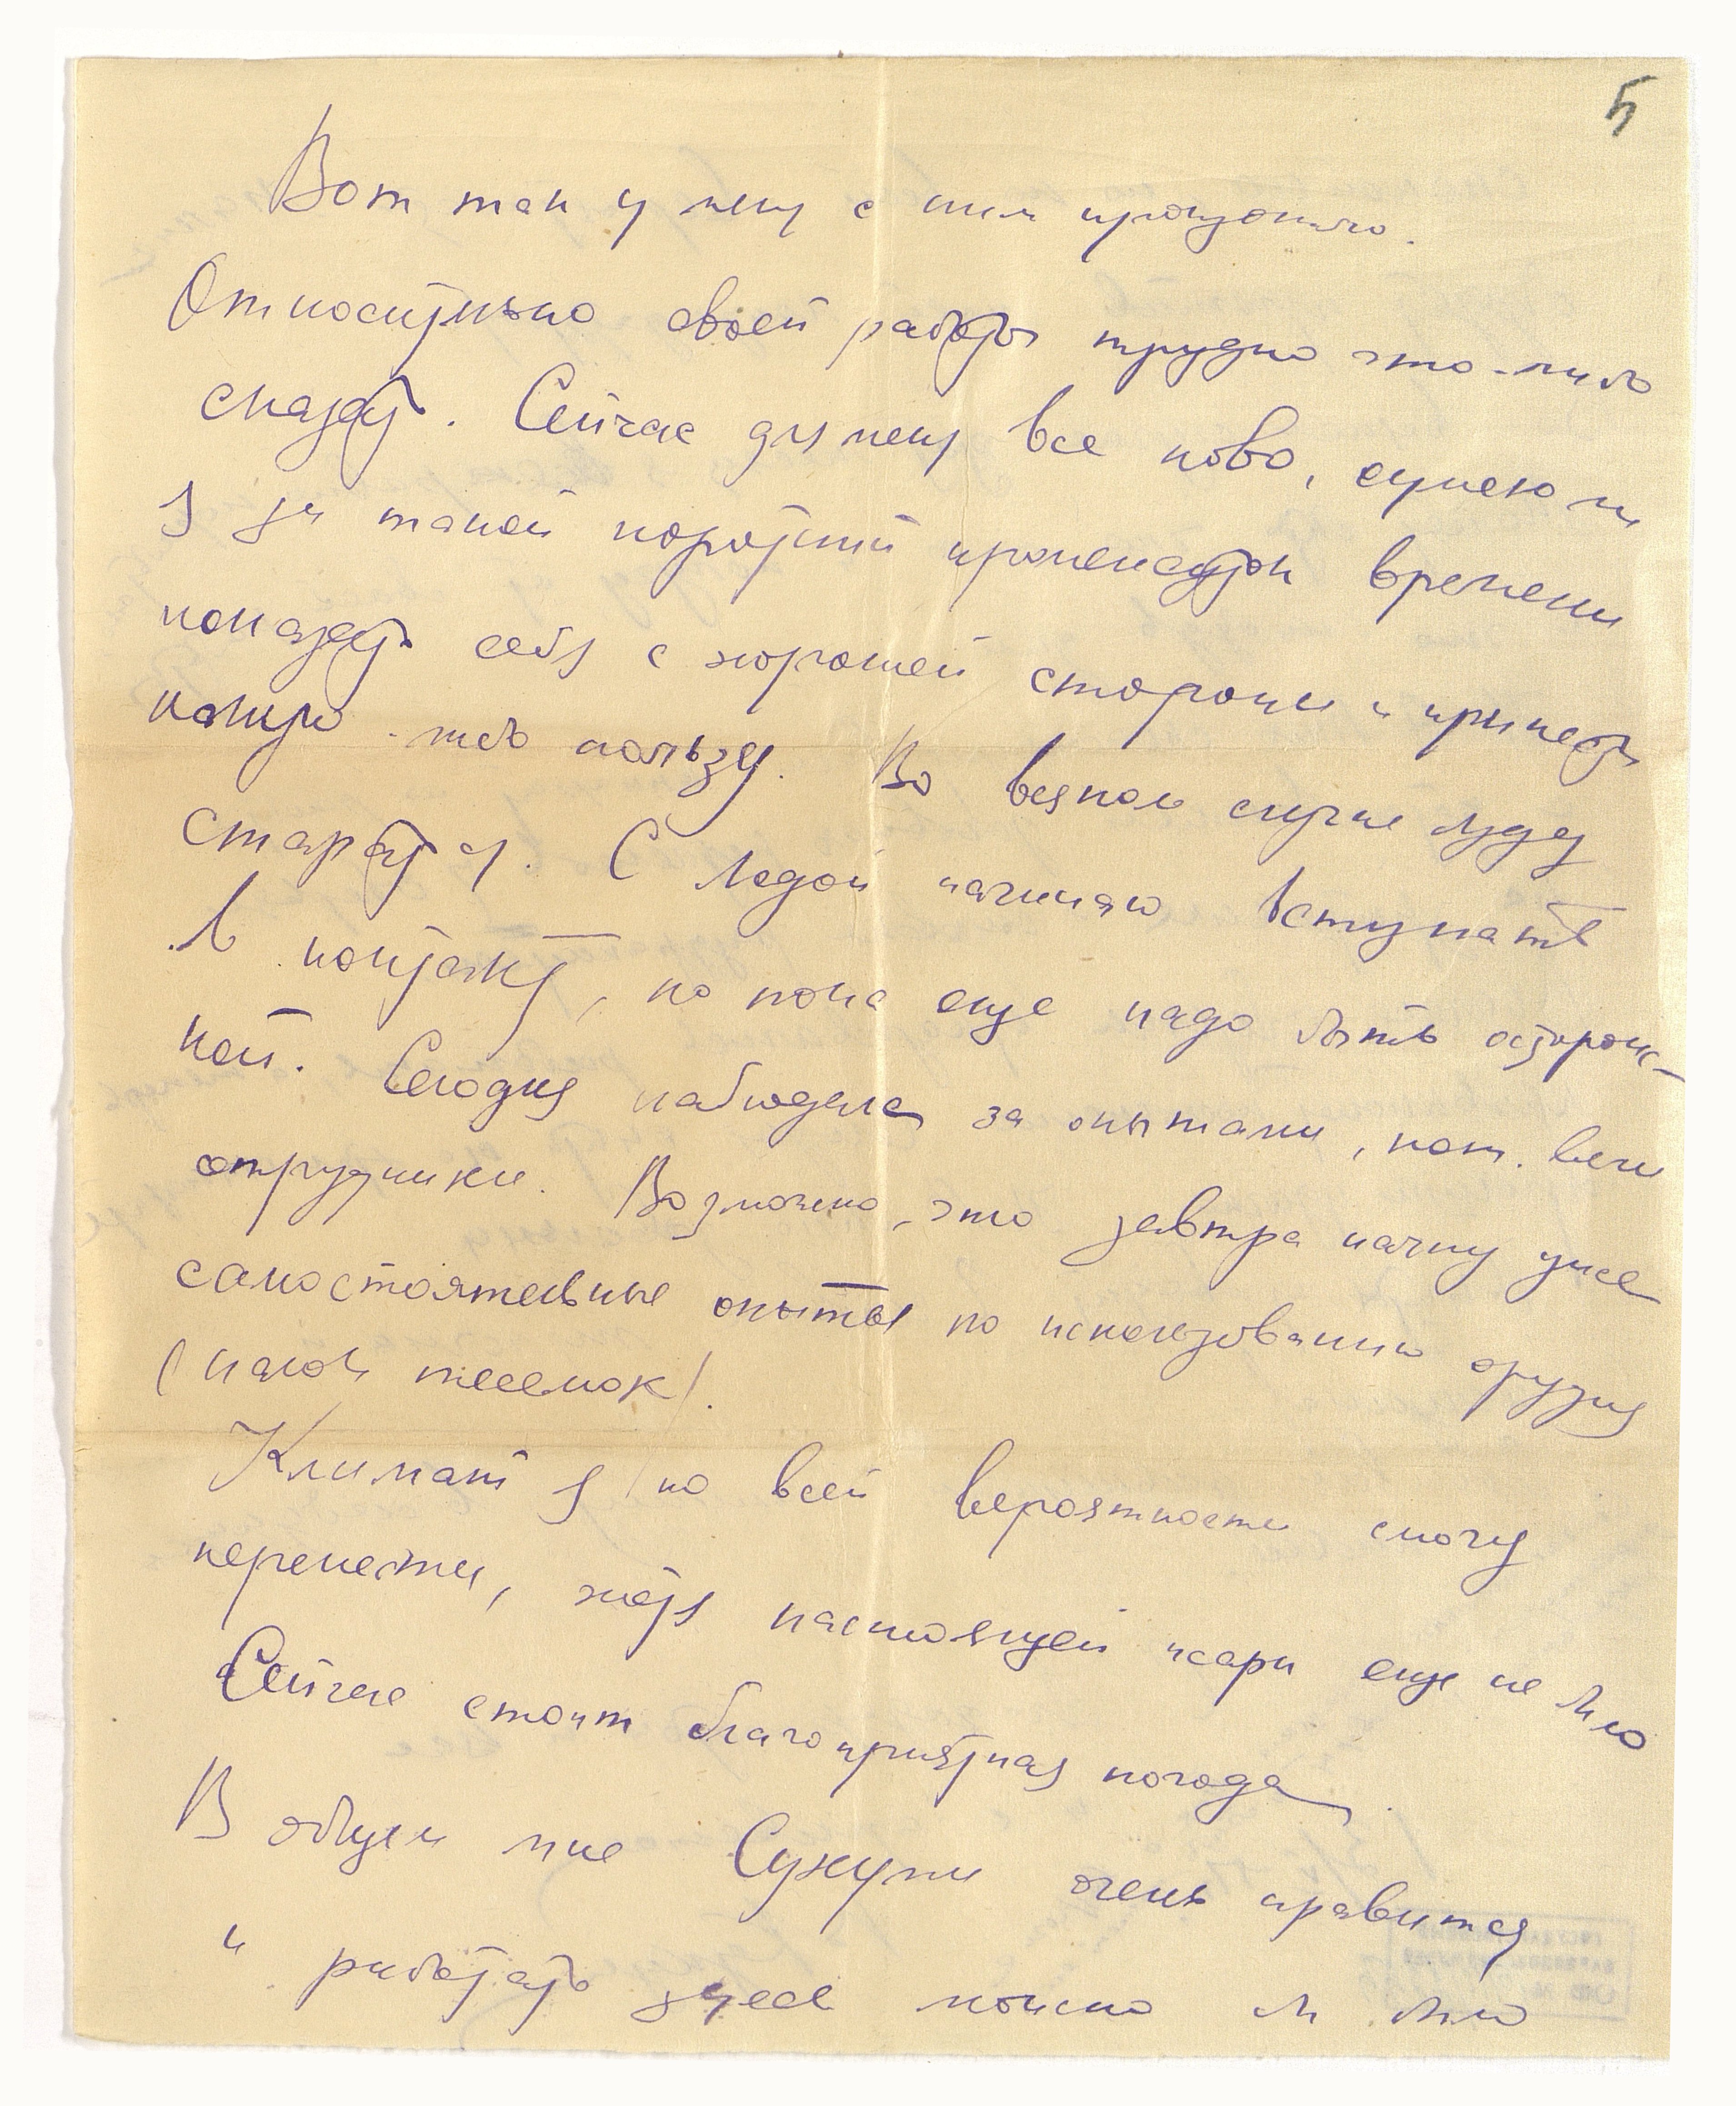 5
Вот так у меня с ним произошло.
Относительно своей работы трудно что-либо
сказать. Сейчас для меня все ново, сумею ли
я за такой короткий промежуток времени
показать себя с хорошей стороны и принести
какую-либо пользу. Во всяком случае буду
стараться. С Ладой начинаю вступать
в контакт, но пока еще надо быть осторож-
ной. Сегодня наблюдала за опытами, кот. вели
сотрудники. Возможно, что завтра начну уже
самостоятельные опыты по использованию орудия
(палок тесемок).
Климат я по всей вероятности смогу
перенести, хотя настоящей жары еще не было
Сейчас стоит благоприятная погода.
В общем мне Сухуми очень нравится
и работать здесь можно было бы